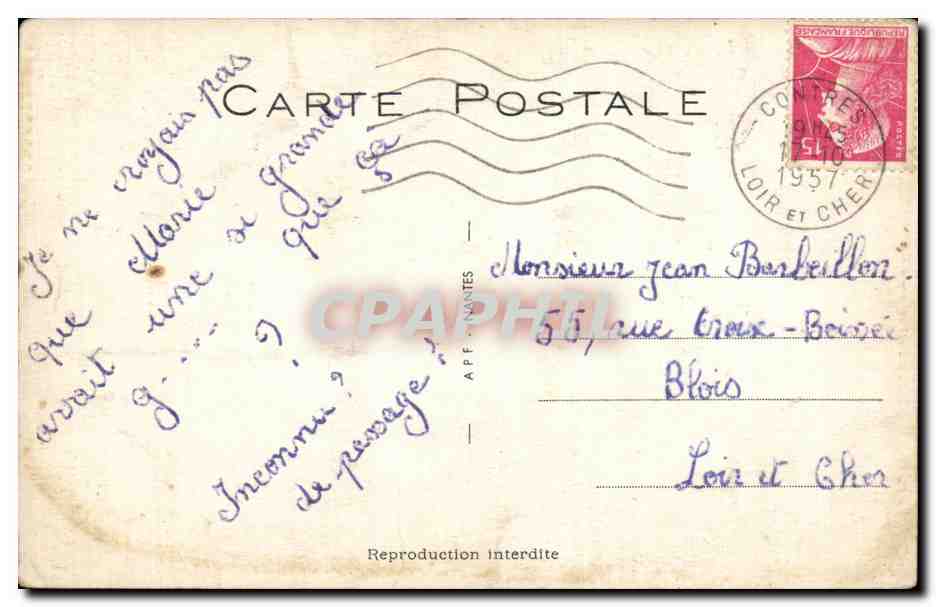 CARTE POSTALE
Je ne croyais pas
que Marie
avait une si grande
g..... que ça
?
Inconnu?
de passage?
A P F - NANTES
CPAPHIL
Monsieur Jean Barbeillon
55, rue Croix-Boissée
Blois
Loir et Cher
Reproduction interdite
REPUBLIQUE FRANÇAISE
POSTES
15
CONTRES
1957
LOIR ET CHER